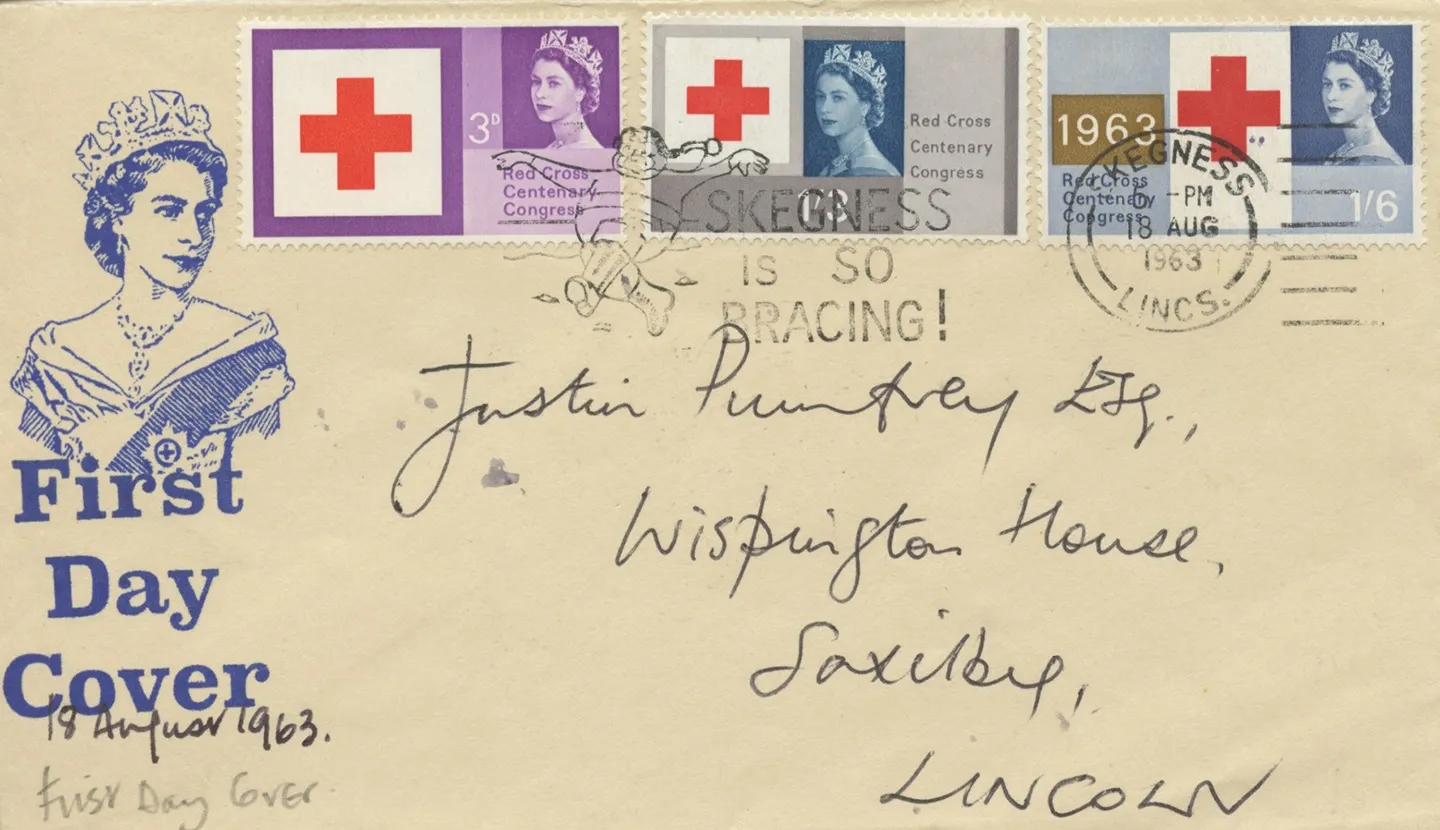 3D
Red Cross
Centenary
Congress
1/3
Red Cross
Centenary
Congress
1963
Red Cross
Centenary
Congress
1/6
SKEGNESS
IS SO
BRACING!
SKEGNESS
5 - PM
18 AUG
1963
LINCS.
First
Day
Cover
18 August 1963.
First Day Cover
Justin Pumfrey Esq.,
Wispington House,
Saxilby,
LINCOLN